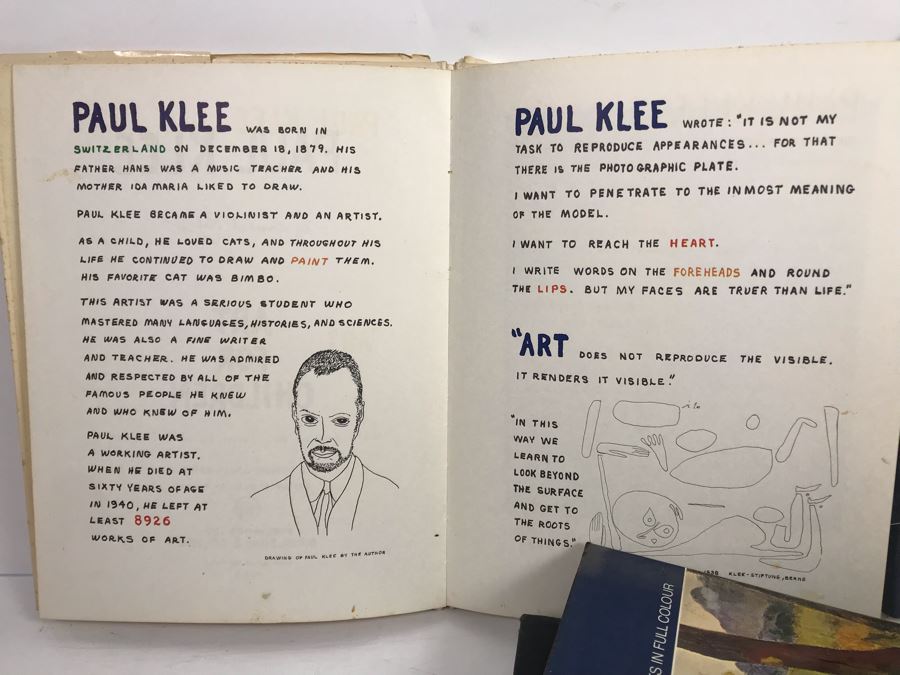 PAUL KLEE WAS BORN IN
SWITZERLAND ON DECEMBER 18, 1879. HIS
FATHER HANS WAS A MUSIC TEACHER AND HIS
MOTHER IDA MARIA LIKED TO DRAW.
PAUL KLEE BECAME A VIOLINIST AND AN ARTIST.
AS A CHILD, HE LOVED CATS, AND THROUGHOUT HIS
LIFE HE CONTINUED TO DRAW AND PAINT THEM.
HIS FAVORITE CAT WAS BIMBO.
THIS ARTIST WAS A SERIOUS STUDENT WHO
MASTERED MANY LANGUAGES, HISTORIES, AND SCIENCES.
HE WAS ALSO A FINE WRITER
AND TEACHER. HE WAS ADMIRED
AND RESPECTED BY ALL OF THE
FAMOUS PEOPLE HE KNEW
AND WHO KNEW OF HIM.
PAUL KLEE WAS
A WORKING ARTIST.
WHEN HE DIED AT
SIXTY YEARS OF AGE
IN 1940, HE LEFT AT
LEAST 8926
WORKS OF ART.
DRAWING OF PAUL KLEE BY THE AUTHOR
PAUL KLEE WROTE: "IT IS NOT MY
TASK TO REPRODUCE APPEARANCES... FOR THAT
THERE IS THE PHOTOGRAPHIC PLATE.
I WANT TO PENETRATE TO THE INMOST MEANING
OF THE MODEL.
I WANT TO REACH THE HEART.
I WRITE WORDS ON THE FOREHEADS AND ROUND
THE LIPS. BUT MY FACES ARE TRUER THAN LIFE."
"ART DOES NOT REPRODUCE THE VISIBLE.
IT RENDERS IT VISIBLE."
"IN THIS
WAY WE
LEARN TO
LOOK BEYOND
THE SURFACE
AND GET TO
THE ROOTS
OF THINGS."
1938 KLEE-STIFTUNG, BERNE
S IN FULL COLOUR